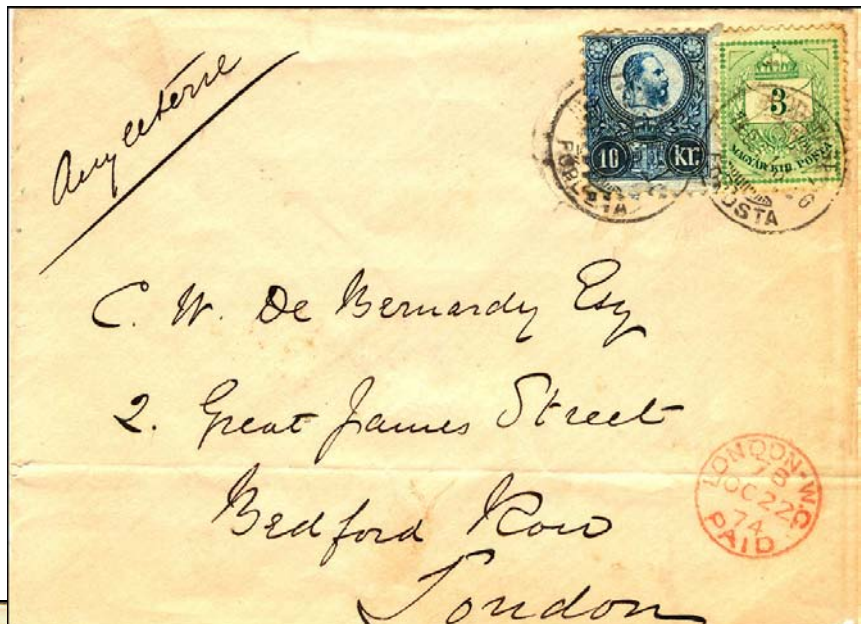 Angleterre
10 KR.
3
MAGYAR KIR. POSTA
C. W. De Bernardy Esq
2. Great James Street
Bedford Row
London
LONDON·W.C
OC 22
74
PAID